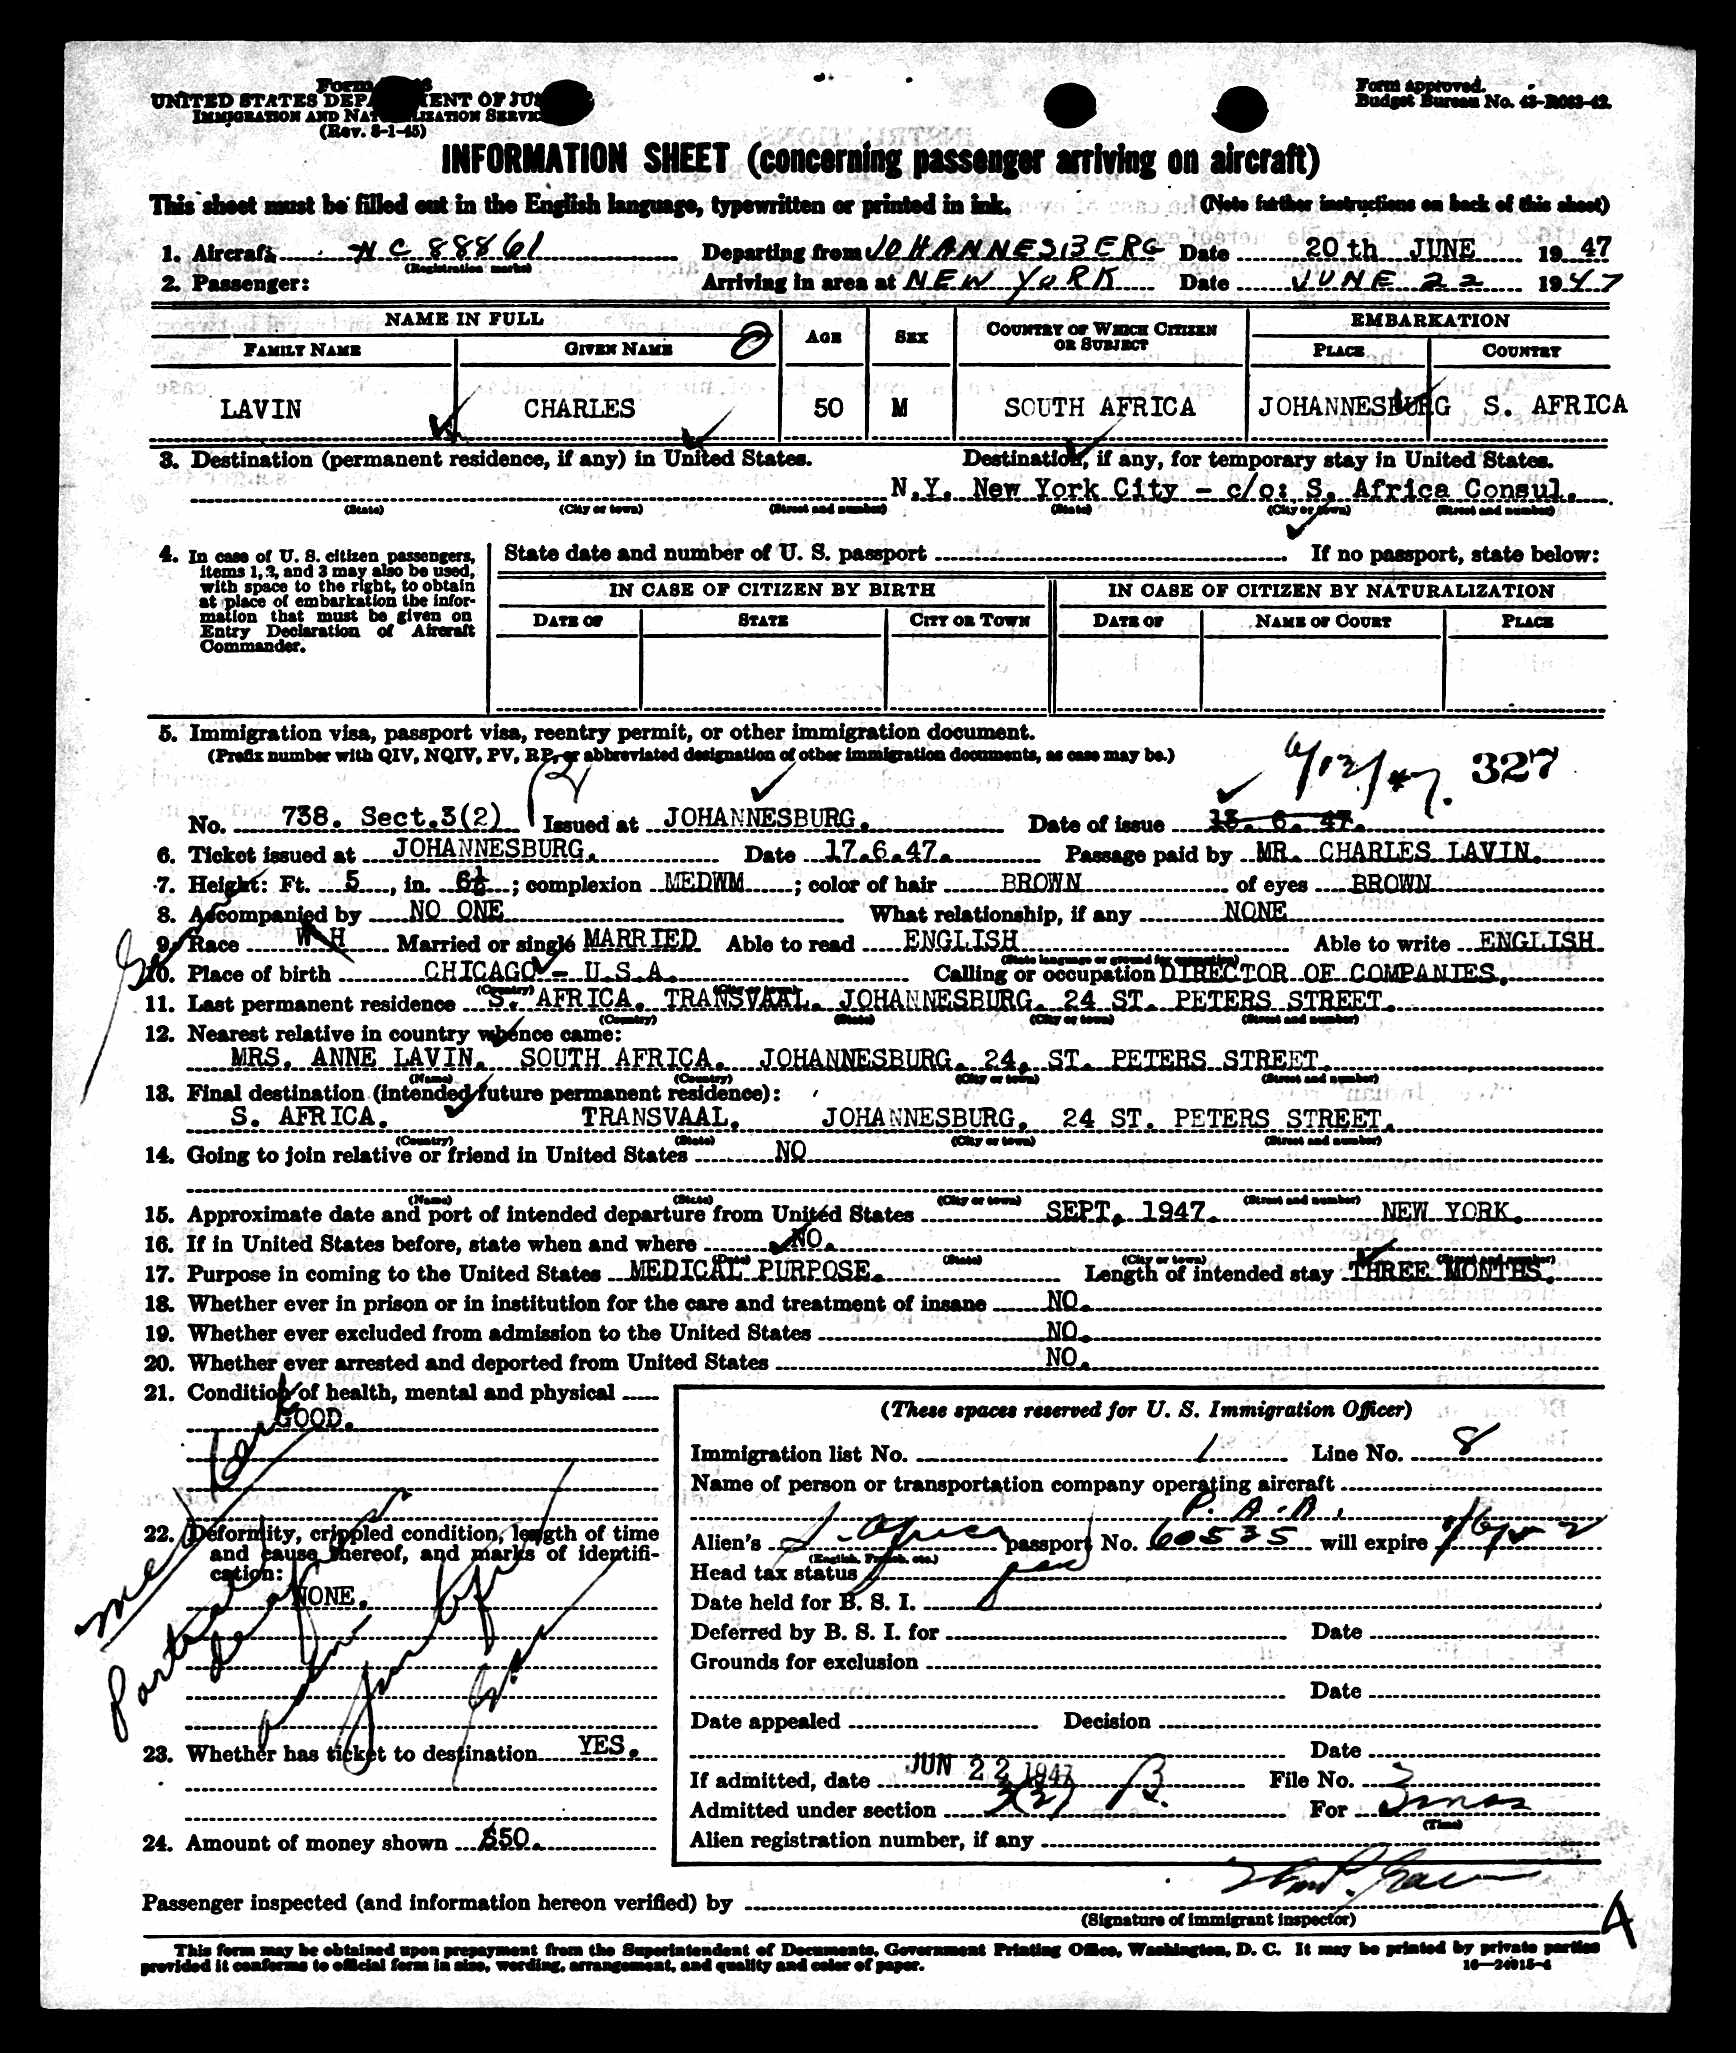 Form
UNITED STATES DEPARTMENT OF JUSTICE
IMMIGRATION AND NATURALIZATION SERVICE
(Rev. 8-1-45)
Form approved.
Budget Bureau No. 43-R083-42.
INFORMATION SHEET (concerning passenger arriving on aircraft)
This sheet must be filled out in the English language, typewritten or printed in ink. (Note further instructions on back of this sheet)
1. Aircraft NC 88861 Departing from JOHANNESBERG Date 20th JUNE 1947
(Registration marks)
2. Passenger: Arriving in area at NEW YORK Date JUNE 22 1947
NAME IN FULL AGE SEX COUNTRY OF WHICH CITIZEN OR SUBJECT EMBARKATION
FAMILY NAME GIVEN NAME PLACE COUNTRY
LAVIN CHARLES 50 M SOUTH AFRICA JOHANNESBURG S. AFRICA
3. Destination (permanent residence, if any) in United States. Destination, if any, for temporary stay in United States.
N.Y. New York City - c/o: S. Africa Consul.
(State) (City or town) (Street and number) (State) (City or town) (Street and number)
4. In case of U. S. citizen passengers, items 1, 2, and 3 may also be used, with space to the right, to obtain at place of embarkation the information that must be given on Entry Declaration of Aircraft Commander.
State date and number of U. S. passport If no passport, state below:
IN CASE OF CITIZEN BY BIRTH IN CASE OF CITIZEN BY NATURALIZATION
DATE OF STATE CITY OR TOWN DATE OF NAME OF COURT PLACE
5. Immigration visa, passport visa, reentry permit, or other immigration document.
(Prefix number with QIV, NQIV, PV, RP, or abbreviated designation of other immigration documents, as case may be.)
6/13/47. 327
No. 738. Sect.3(2) Issued at JOHANNESBURG. Date of issue 13. 6. 47.
6. Ticket issued at JOHANNESBURG. Date 17.6.47. Passage paid by MR. CHARLES LAVIN.
7. Height: Ft. 5, in. 6½; complexion MEDWM; color of hair BROWN of eyes BROWN
8. Accompanied by NO ONE What relationship, if any NONE
9. Race W H Married or single MARRIED Able to read ENGLISH Able to write ENGLISH
(State language or ground for exemption)
10. Place of birth CHICAGO - U.S.A. Calling or occupation DIRECTOR OF COMPANIES.
(Country) (City or town)
11. Last permanent residence S. AFRICA. TRANSVAAL. JOHANNESBURG. 24 ST. PETERS STREET.
(Country) (State) (City or town) (Street and number)
12. Nearest relative in country whence came:
MRS. ANNE LAVIN. SOUTH AFRICA. JOHANNESBURG. 24, ST. PETERS STREET.
(Name) (Country) (City or town) (Street and number)
13. Final destination (intended future permanent residence):
S. AFRICA. TRANSVAAL. JOHANNESBURG. 24 ST. PETERS STREET.
(Country) (State) (City or town) (Street and number)
14. Going to join relative or friend in United States NO
(Name) (State) (City or town) (Street and number)
15. Approximate date and port of intended departure from United States SEPT. 1947. NEW YORK.
16. If in United States before, state when and where NO.
(Date) (State) (City or town) (Street and number)
17. Purpose in coming to the United States MEDICAL PURPOSE. Length of intended stay THREE MONTHS.
18. Whether ever in prison or in institution for the care and treatment of insane NO.
19. Whether ever excluded from admission to the United States NO.
20. Whether ever arrested and deported from United States NO.
21. Condition of health, mental and physical
GOOD.
Med Cert
Partial deafness
22. Deformity, crippled condition, length of time and cause thereof, and marks of identification:
NONE.
23. Whether has ticket to destination YES.
24. Amount of money shown $50.
(These spaces reserved for U. S. Immigration Officer)
Immigration list No. 1 Line No. 8
Name of person or transportation company operating aircraft
P. A. A.
Alien's S. Africa passport No. 60535 will expire
(English, French, etc.)
Head tax status
Date held for B. S. I.
Deferred by B. S. I. for Date
Grounds for exclusion
Date
Date appealed Decision
Date
If admitted, date JUN 22 1947 File No.
Admitted under section 3(2) For 3 mos
(Time)
Alien registration number, if any
Passenger inspected (and information hereon verified) by
(Signature of immigrant inspector)
A
This form may be obtained upon prepayment from the Superintendent of Documents, Government Printing Office, Washington, D. C. It may be printed by private parties
provided it conforms to official form in size, wording, arrangement, and quality and color of paper. 16—24915-4